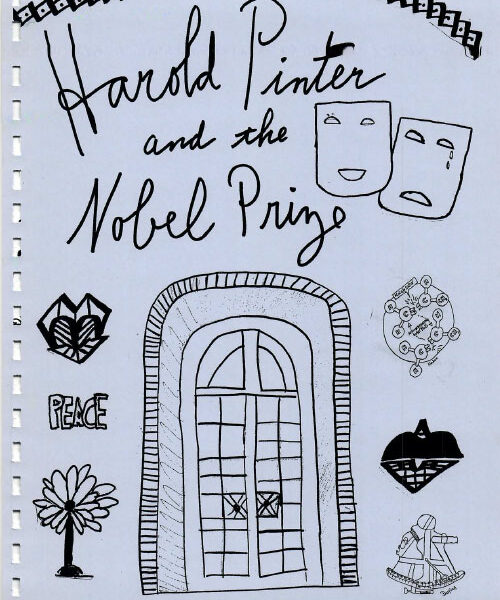 Harold Pinter
and the
Nobel Prize
PEACE